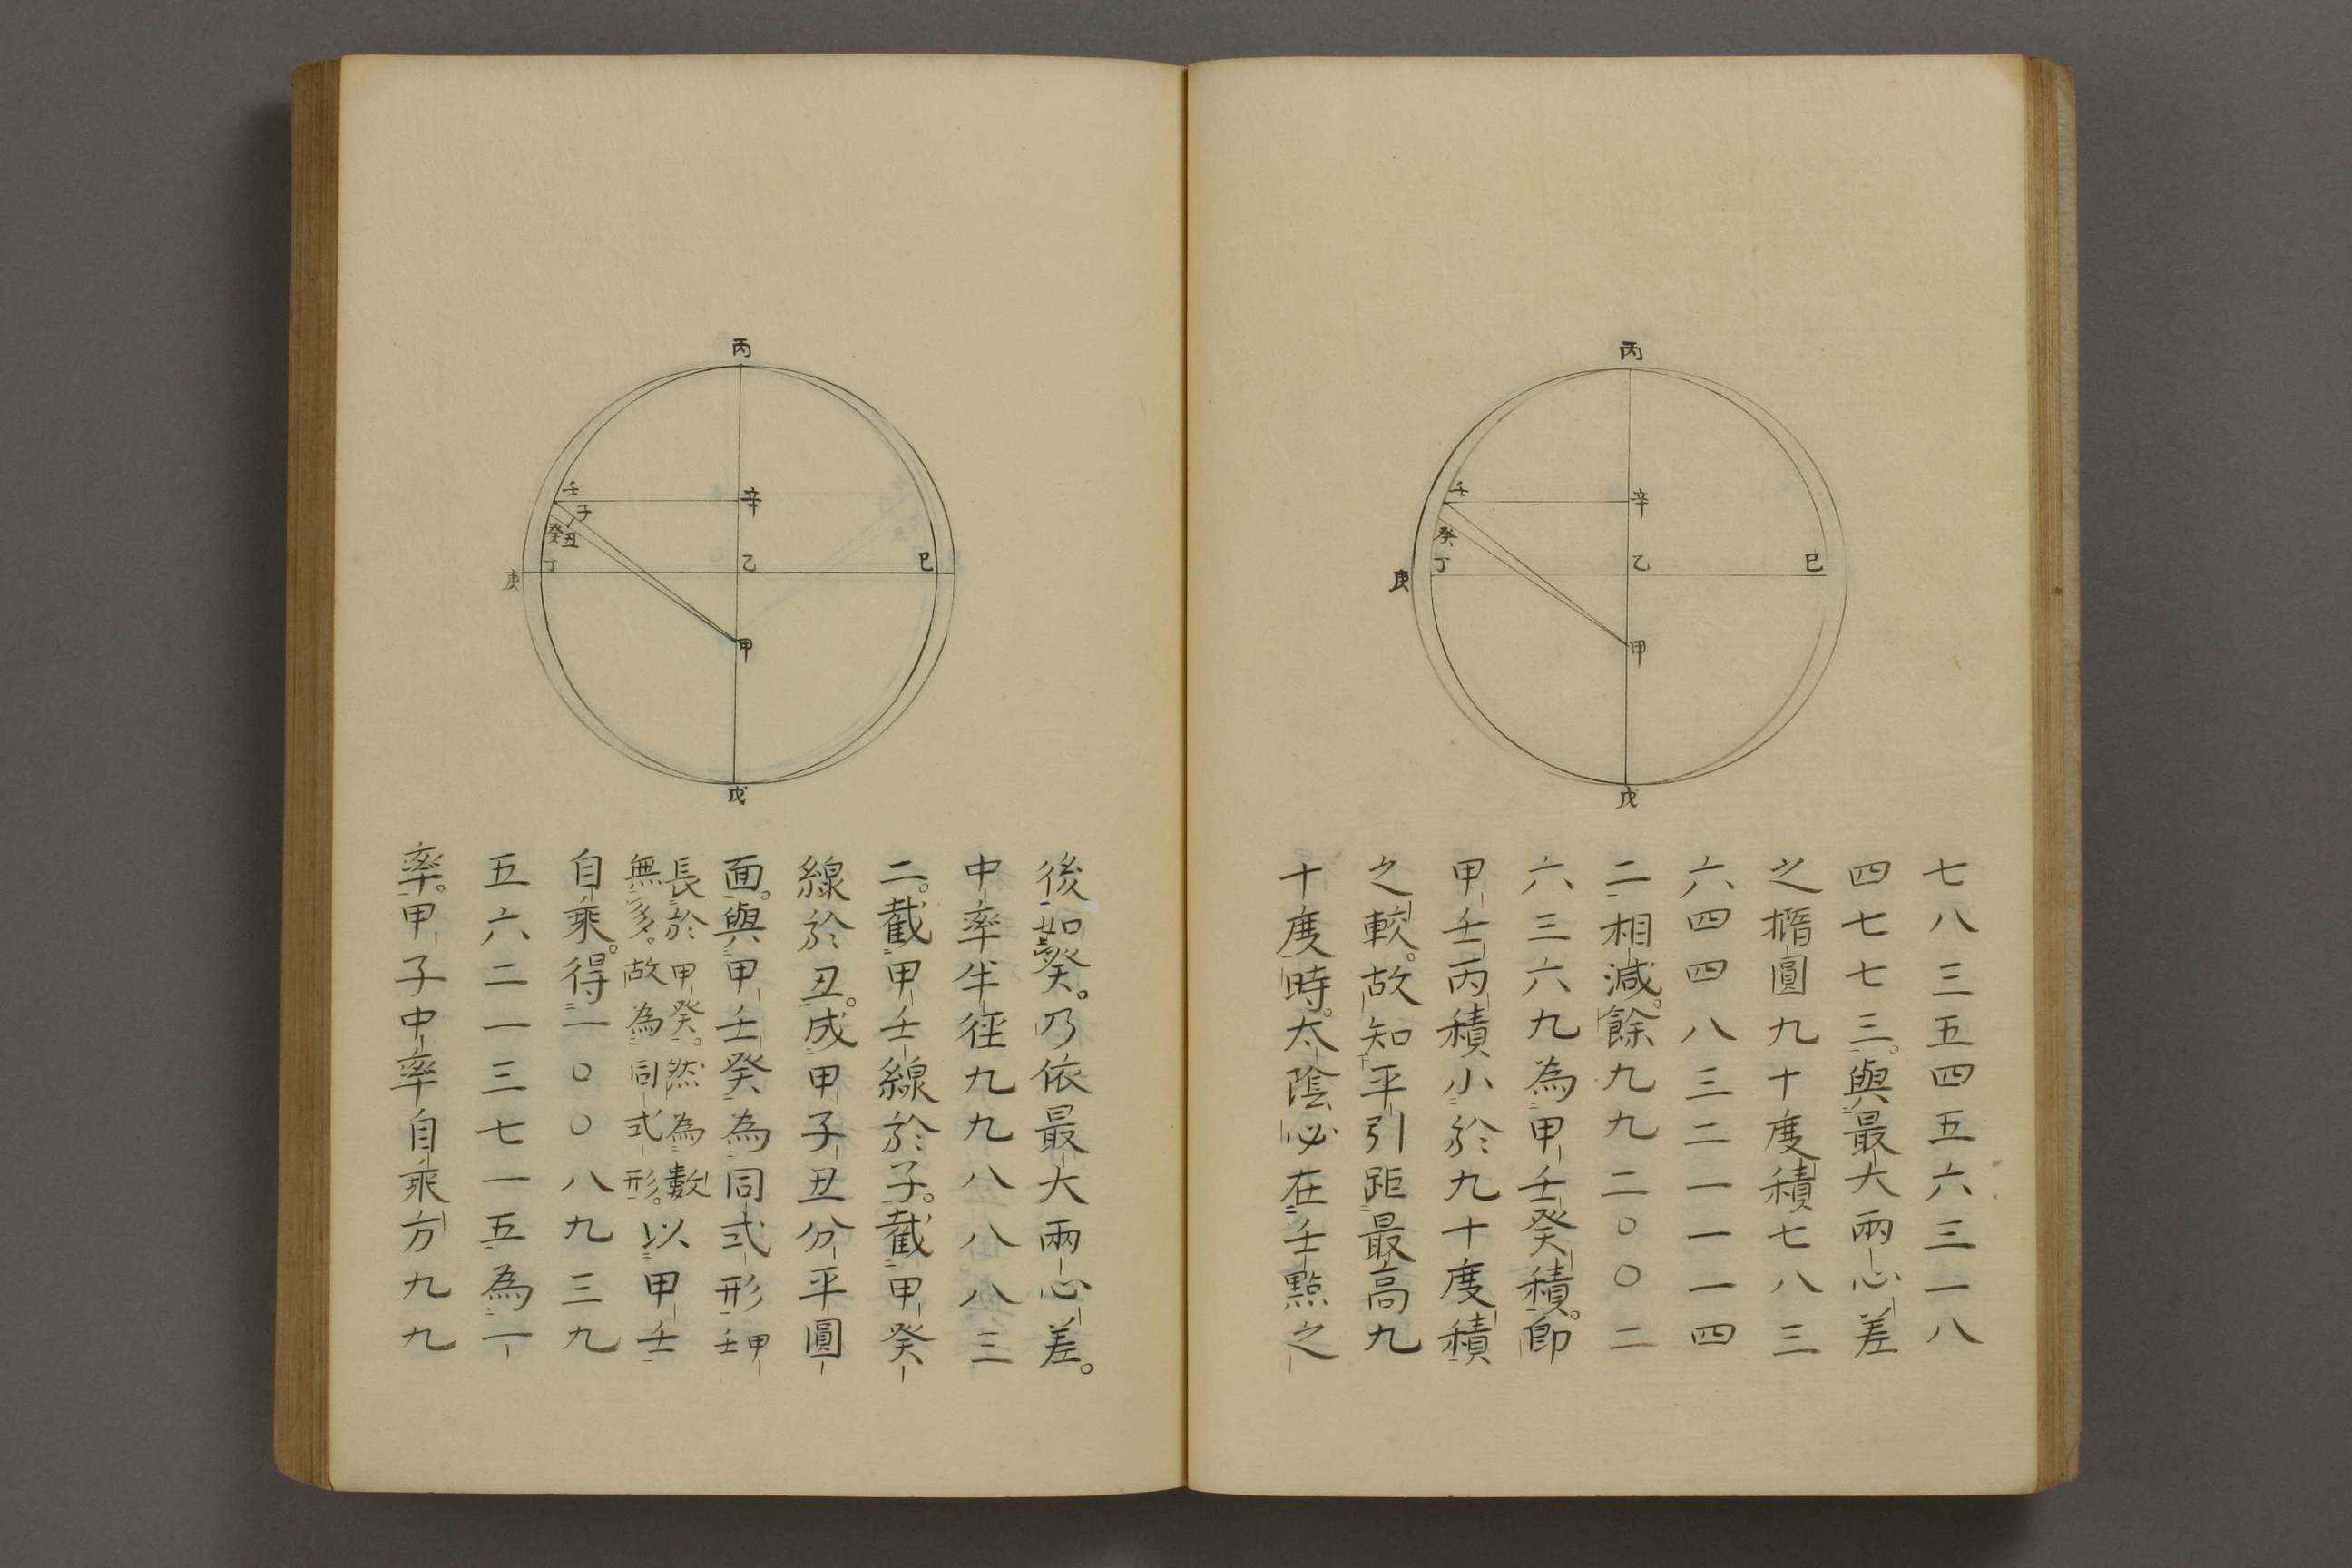 丙
壬
辛
癸
丁
乙
巳
庚
甲
戊
七八三五四五六三一八
四七七三。與最大兩心差
之橢圓九十度積七八三
六四四八三二一一一四
二相減。餘九九二〇〇二
六三六九為甲壬癸積。卽
甲壬丙積小於九十度積
之較。故知平引距最高九
十度時。太陰必在壬點之
丙
壬
辛
子
癸
丑
丁
乙
巳
庚
甲
戊
後如癸。乃依最大兩心差。
中率半徑九九八八八三
二。截甲壬線於子。截甲癸
線於丑。成甲子丑分平圓
面。與甲壬癸為同式形甲壬
長於甲癸。然為數
無多。故為同式形。以甲壬
自乘。得一〇〇八九三九
五六二一三七一五為一
率。甲子中率自乘方九九